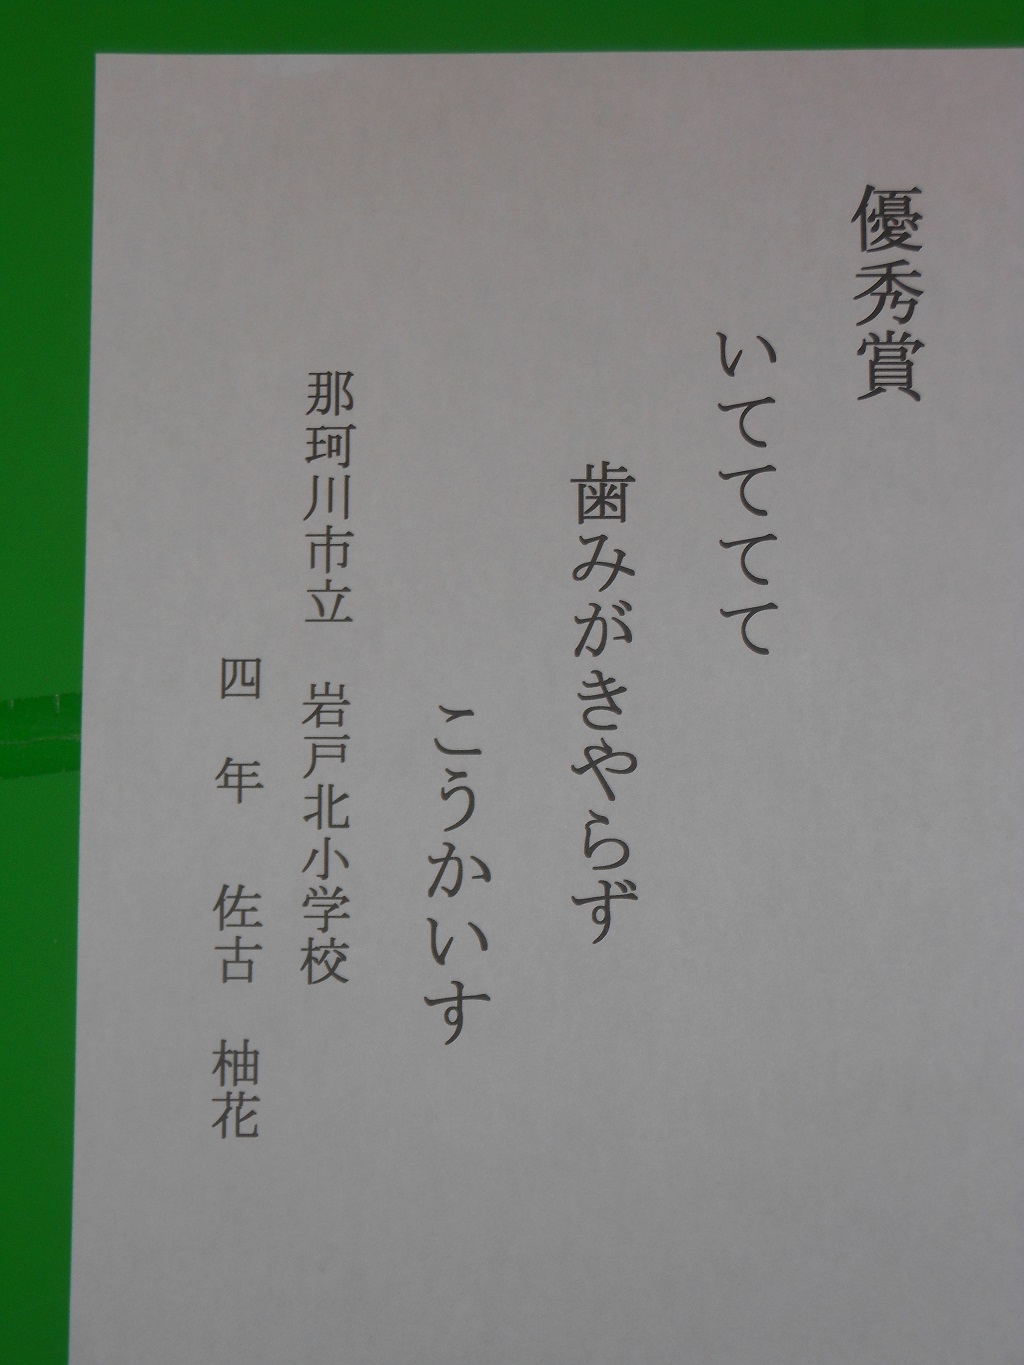 優秀賞
いてててて
歯みがきやらず
こうかいす
那珂川市立 岩戸北小学校
四 年 佐古 柚花